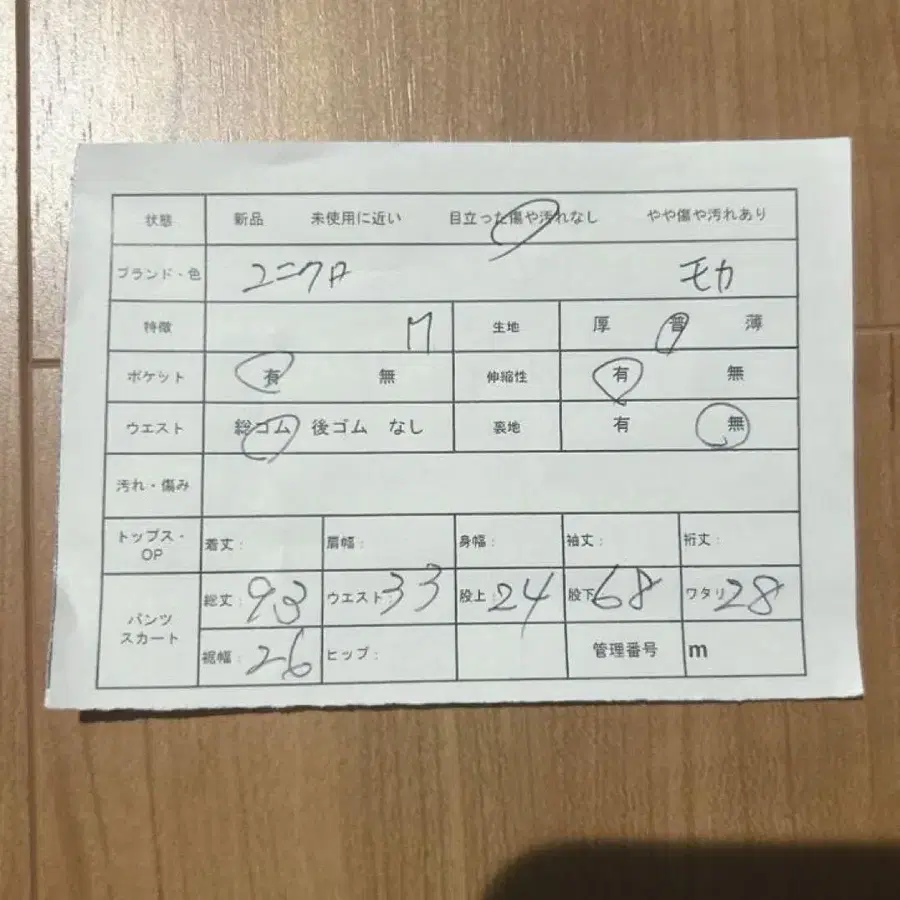 状態 新品 未使用に近い 目立った傷や汚れなし やや傷や汚れあり
ブランド・色 ユニクロ モカ
特徴 M 生地 厚 普 薄
ポケット 有 無 伸縮性 有 無
ウエスト 総ゴム 後ゴム なし 裏地 有 無
汚れ・傷み
トップス・OP 着丈: 肩幅: 身幅: 袖丈: 裄丈:
パンツ スカート 総丈:93 ウエスト:33 股上:24 股下68 ワタリ28
裾幅:26 ヒップ: 管理番号 m